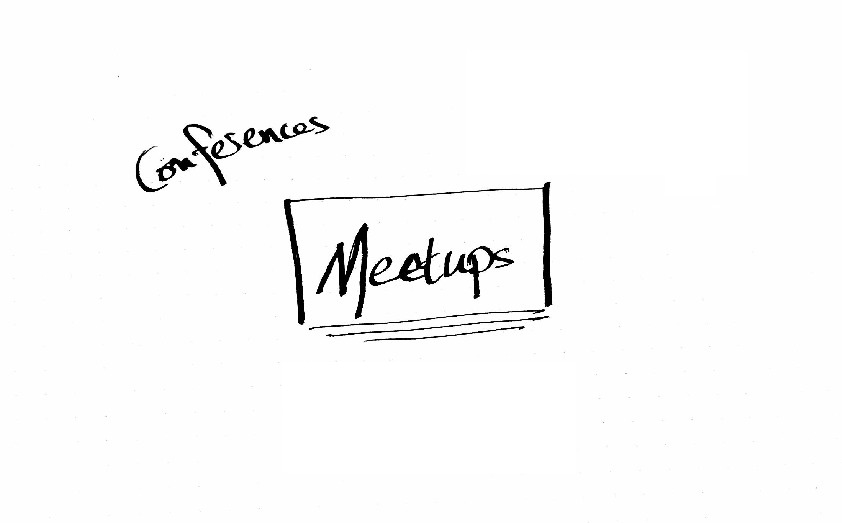 Conferences
Meetups